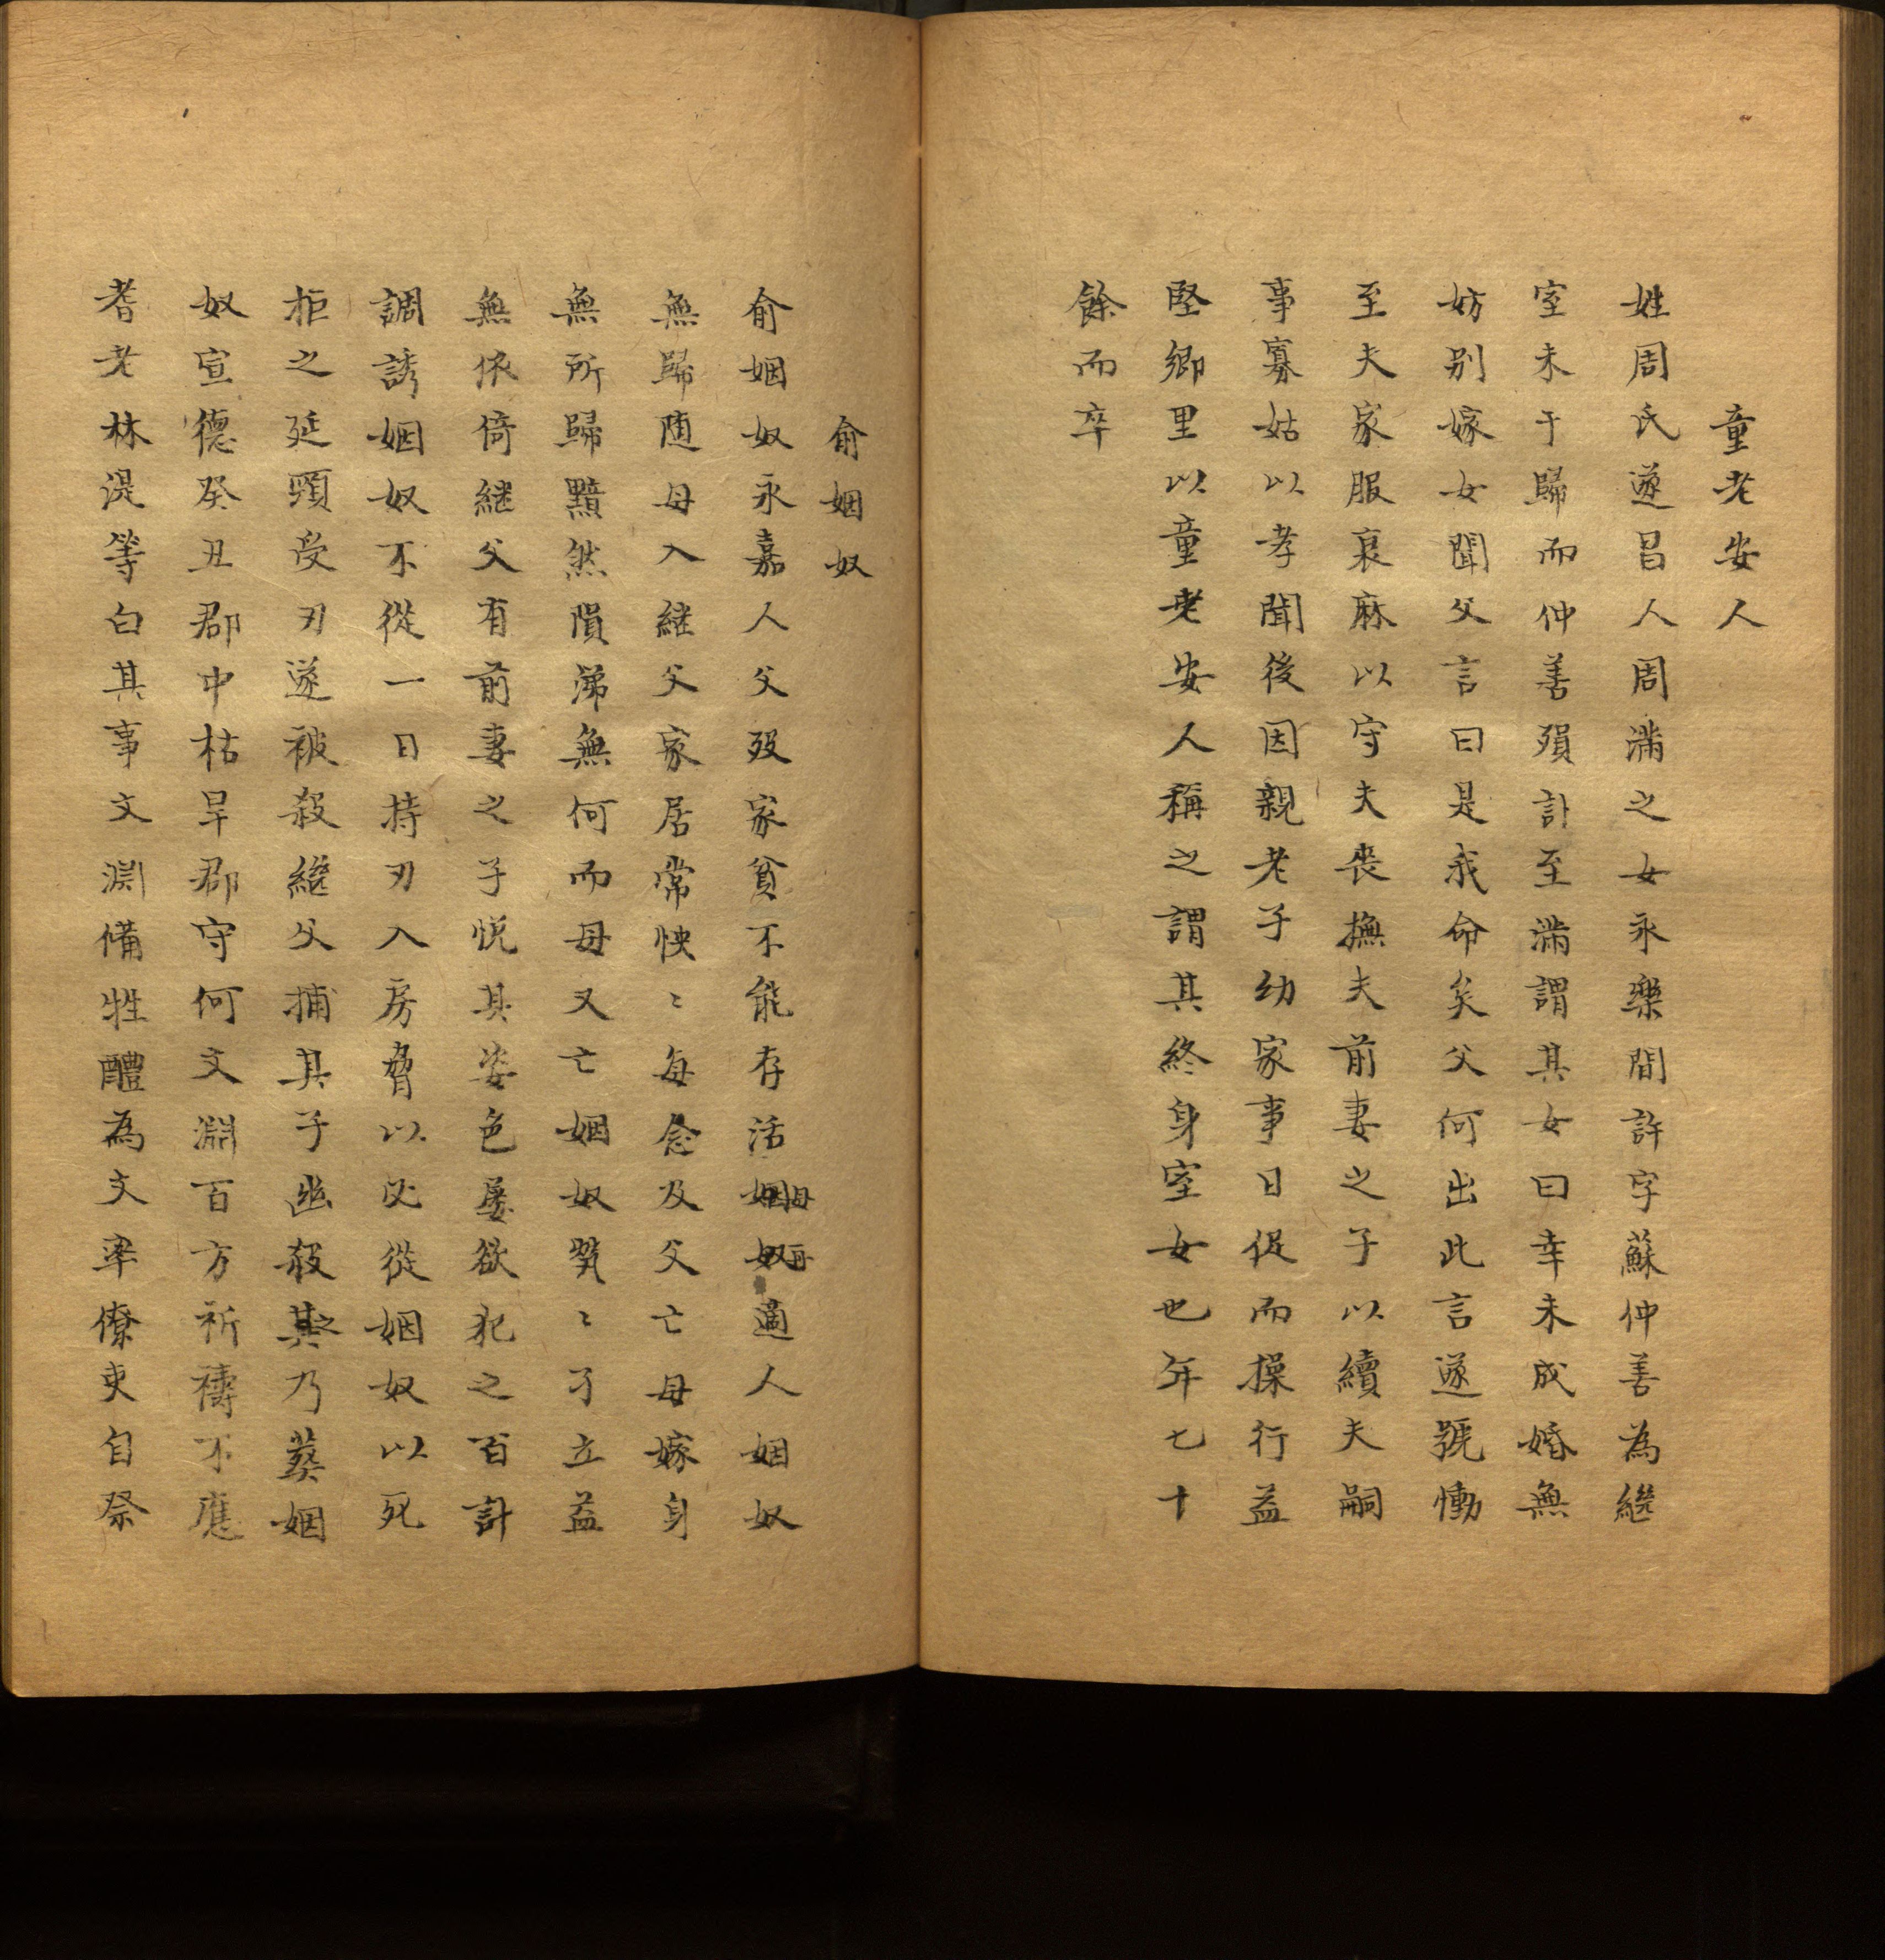 童老安人
姓周氏遂昌人周滿之女永樂間許字蘇仲善為繼
室未于歸而仲善殞訃至滿謂其女曰幸未成婚無
妨別嫁女聞父言曰是我命矣父何出此言遂號慟
至夫家服衰麻以守夫喪撫夫前妻之子以續夫嗣
事寡姑以孝聞後因親老子幼家事日促而操行益
堅鄉里以童老安人稱之謂其終身室女也年七十
餘而卒
俞姻奴
俞姻奴永嘉人父歿家貧不能存活母再適人姻奴
無歸隨母入繼父家居常怏〻每念及父亡母嫁身
無所歸黯然隕涕無何而母又亡姻奴煢〻孑立益
無依倚繼父有前妻之子悅其姿色屢欲犯之百計
調誘姻奴不從一日持刃入房脅以必從姻奴以死
拒之延頸受刃遂被殺繼父捕其子幽殺之乃葬姻
奴宣德癸丑郡中枯旱郡守何文淵百方祈禱不應
耆老林湜等白其事文淵備牲醴為文率僚吏自祭